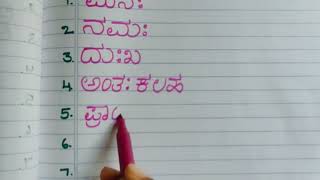 1. ಮನಃ
2. ನಮಃ
3. ದುಃಖ
4. ಅಂತಃ ಕಲಹ
5. ಪ್ರಾ
6.
7.